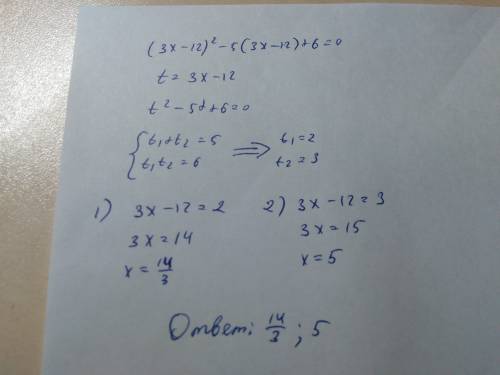 (3x-12)²-5(3x-12)+6=0
t=3x-12
t²-5t+6=0
{t₁+t₂=5 ⇒ t₁=2
{t₁t₂=6 t₂=3
1) 3x-12=2
3x=14
x=14/3
2) 3x-12=3
3x=15
x=5
Ответ: 14/3; 5